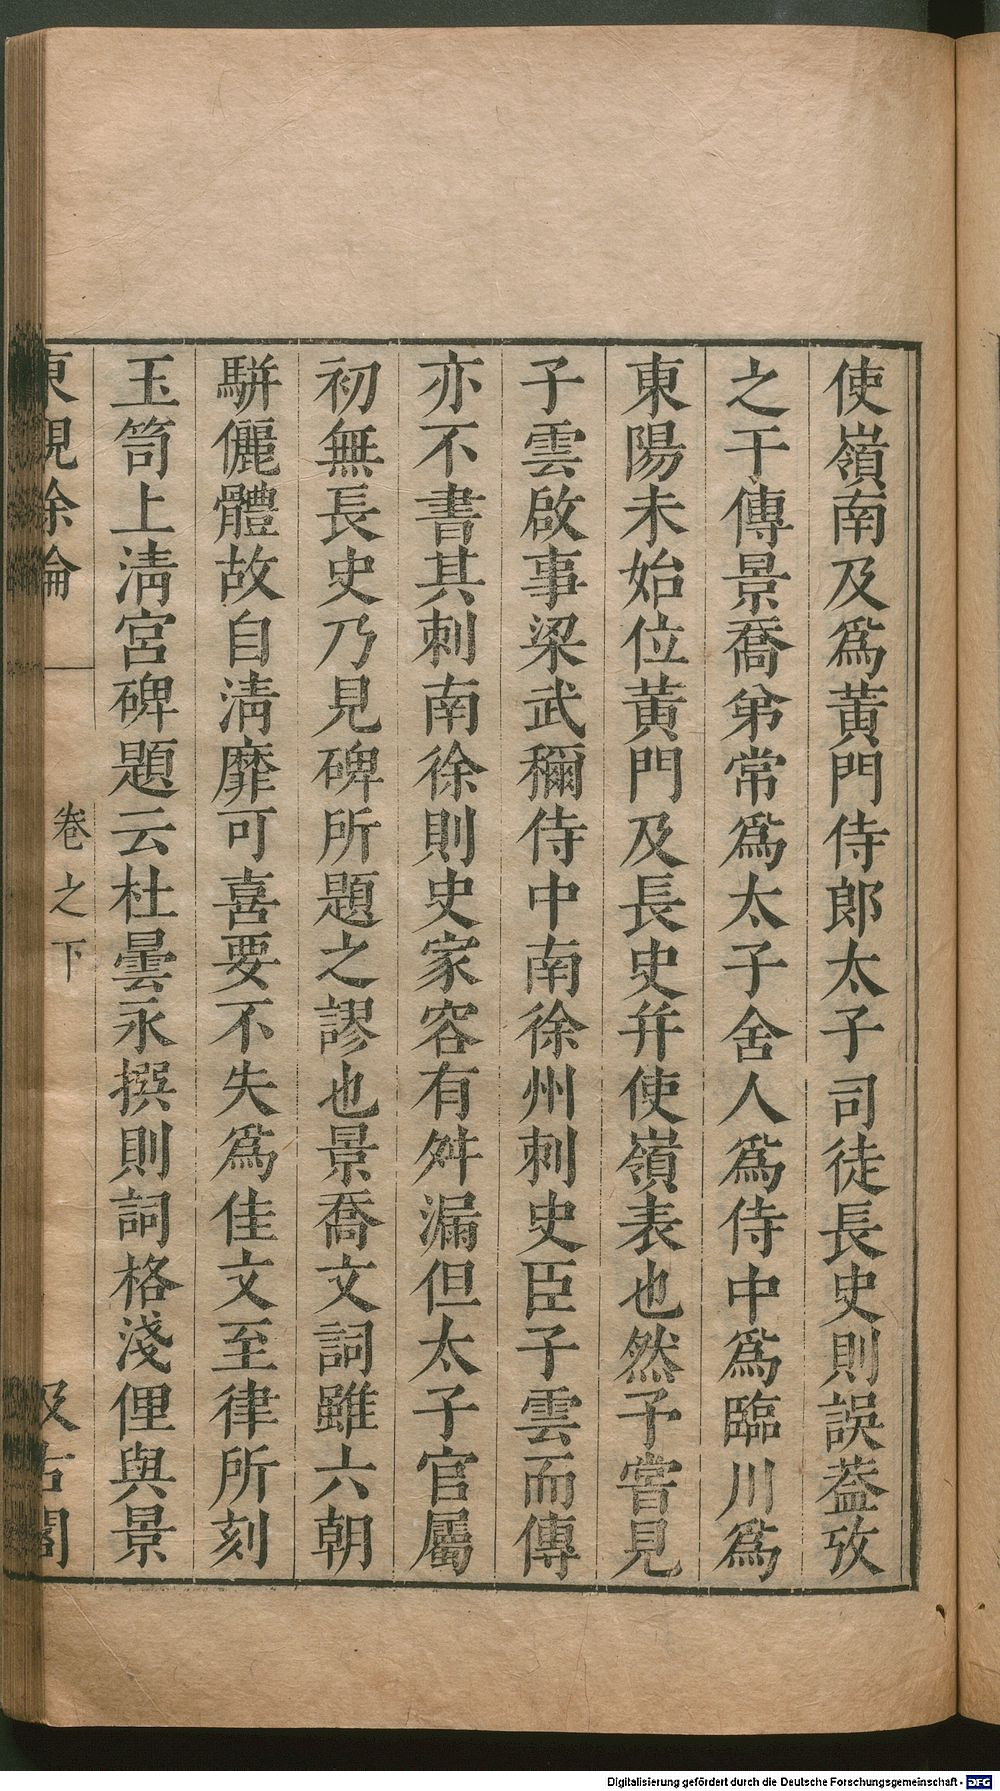 使嶺南及爲黃門侍郎太子 司徒長史則誤葢攷
之干傳景喬弟常爲太子舍人爲侍中爲臨川爲
東陽未始位黃門及長史幷使嶺表也然予嘗見
子雲啟事梁武稱侍中南徐州刺史臣子雲而傳
亦不書其刺南徐則史家容有舛漏但太子官屬
初無長史乃見碑所題之謬也景喬文詞雖六朝
駢儷體故自淸靡可喜要不失爲佳文至律所刻
玉笥上淸宮碑題云杜曇永撰則詞格淺俚與景
東觀餘論
卷之下
汲古閣
Digitalisierung gefördert durch die Deutsche Forschungsgemeinschaft - DFG